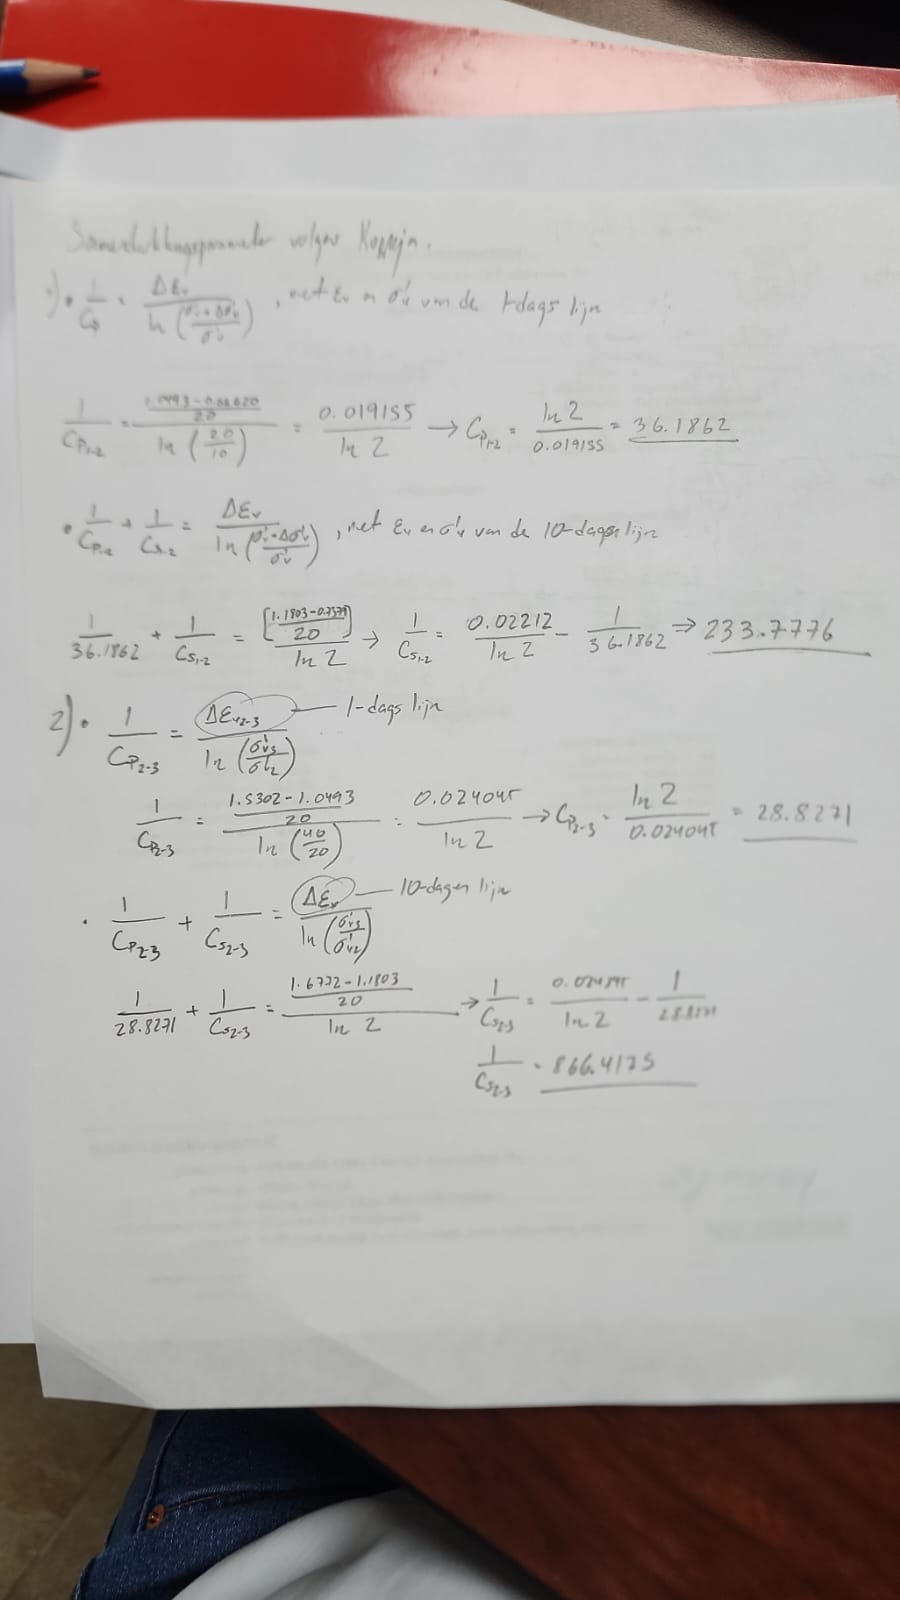 Samendrukkingsparameter volgens Koppejan.
1) • 1/Cp = Δεv / ln((σ'v + Δσ'v)/σ'v) , met εv en σ'v van de 1-dags lijn
1/Cp1-2 = ((1.0493 - 0.66620)/20) / ln(20/10) = 0.019155 / ln 2 → Cp1-2 = ln 2 / 0.019155 = 36.1862
• 1/Cp1-2 + 1/Cs1-2 = Δεv / ln((σ'v + Δσ'v)/σ'v) , met εv en σ'v van de 10-dagen lijn
1/36.1862 + 1/Cs1-2 = [(1.1803 - 0.7379)/20] / ln 2 → 1/Cs1-2 = 0.02212/ln 2 - 1/36.1862 ⇒ 233.7776
2) • 1/Cp2-3 = Δεv2-3 / ln(σ'v3/σ'v2) — 1-dags lijn
1/Cp2-3 = ((1.5302 - 1.0493)/20) / ln(40/20) = 0.024045 / ln 2 → Cp2-3 = ln 2 / 0.024045 = 28.8271
• 1/Cp2-3 + 1/Cs2-3 = Δεv / ln(σ'v3/σ'v2) — 10-dagen lijn
1/28.8271 + 1/Cs2-3 = ((1.6772 - 1.1803)/20) / ln 2 → 1/Cs2-3 = / ln 2 - 1/28.8271
1/Cs2-3 = 866.4175